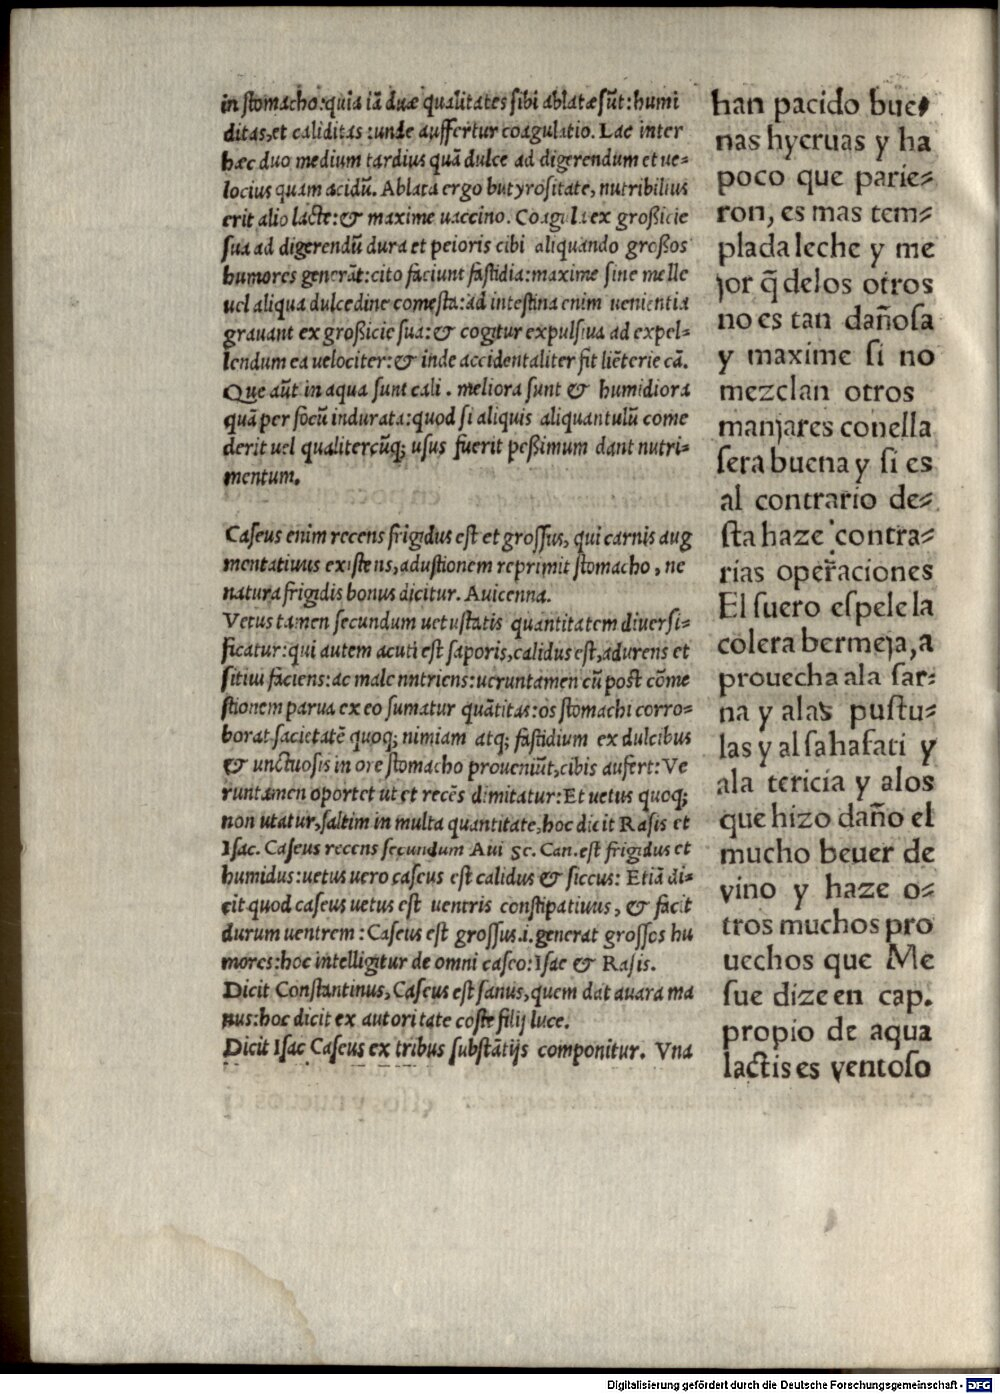 in ſtomacho:quia iā duæ qualitates ſibi ablatæ ſūt:humi
ditas,et caliditas :unde auffertur coagulatio. Lac inter
hæc duo medium tardius quā dulce ad digerendum et ue=
locius quam acidū. Ablata ergo butyroſitate, nutribilius
erit alio lacte:& maxime uaccino. Coagula ex großicie
ſua ad digerendū dura et peioris cibi aliquando großos
humores generāt:cito faciunt faſtidia:maxime ſine melle
uel aliqua dulcedine comeſta:ad inteſtina enim uenientia
grauant ex großicie ſua:& cogitur expulſiua ad expel=
lendum ea uelociter:& inde accidentaliter fit liēterie cā.
Que aūt in aqua ſunt cali . meliora ſunt & humidiora
quā per focū indurata:quod ſi aliquis aliquantulū come
derit uel qualitercūq; uſus fuerit peßimum dant nutri=
mentum.
Caſeus enim recens frigidus eſt et groſſus, qui carnis aug
mentatiuus exiſtens,aduſtionem reprimit ſtomacho, ne
natura frigidis bonus dicitur. Auicenna.
Vetus tamen ſecundum uetuſtatis quantitatem diuerſi=
ficatur:qui autem acuti eſt ſaporis,calidus eſt,adurens et
ſitim faciens:ac male nntriens:ueruntamen cū poſt cōme
ſtionem parua ex eo ſumatur quātitas:os ſtomachi corro=
borat ſacietatē quoq; nimiam atq; faſtidium ex dulcibus
& unctuoſis in ore ſtomacho proueniūt,cibis aufert:Ve
runtamen oportet ut et recēs dimitatur:Et uetus quoq;
non utatur,ſaltim in multa quantitate,hoc dicit Raſis et
Iſac. Caſeus recens ſecundum Aui 5c. Can.eſt frigidus et
humidus:uetus uero caſeus eſt calidus & ſiccus: Etiā di=
cit quod caſeus uetus eſt uentris conſtipatiuus, & facit
durum uentrem : Caſeus eſt groſſus.i.generat groſſos hu
mores:hoc intelligitur de omni caſeo:Iſac & Raſis.
Dicit Conſtantinus, Caſeus eſt ſanus, quem dat auara ma
nus:hoc dicit ex autoritate coſte filij luce.
Dicit Iſac Caſeus ex tribus ſubſtātijs componitur. Vna
han pacido bue=
nas hyeruas y ha
poco que parie=
ron, es mas tem=
plada leche y me
jor q̄ delos otros
no es tan dañoſa
y maxime ſi no
mezclan otros
manjares conella
ſera buena y ſi es
al contrario de=
ſta haze contra=
rias operaciones
El ſuero eſpele la
colera bermeja,a
prouecha ala ſar=
na y alas puſtu=
las y al ſahafati y
ala tericia y alos
que hizo daño el
mucho beuer de
vino y haze o=
tros muchos pro
uechos que Me
ſue dize en cap.
propio de aqua
lactis es ventoſo
Digitalisierung gefördert durch die Deutsche Forschungsgemeinschaft - DFG